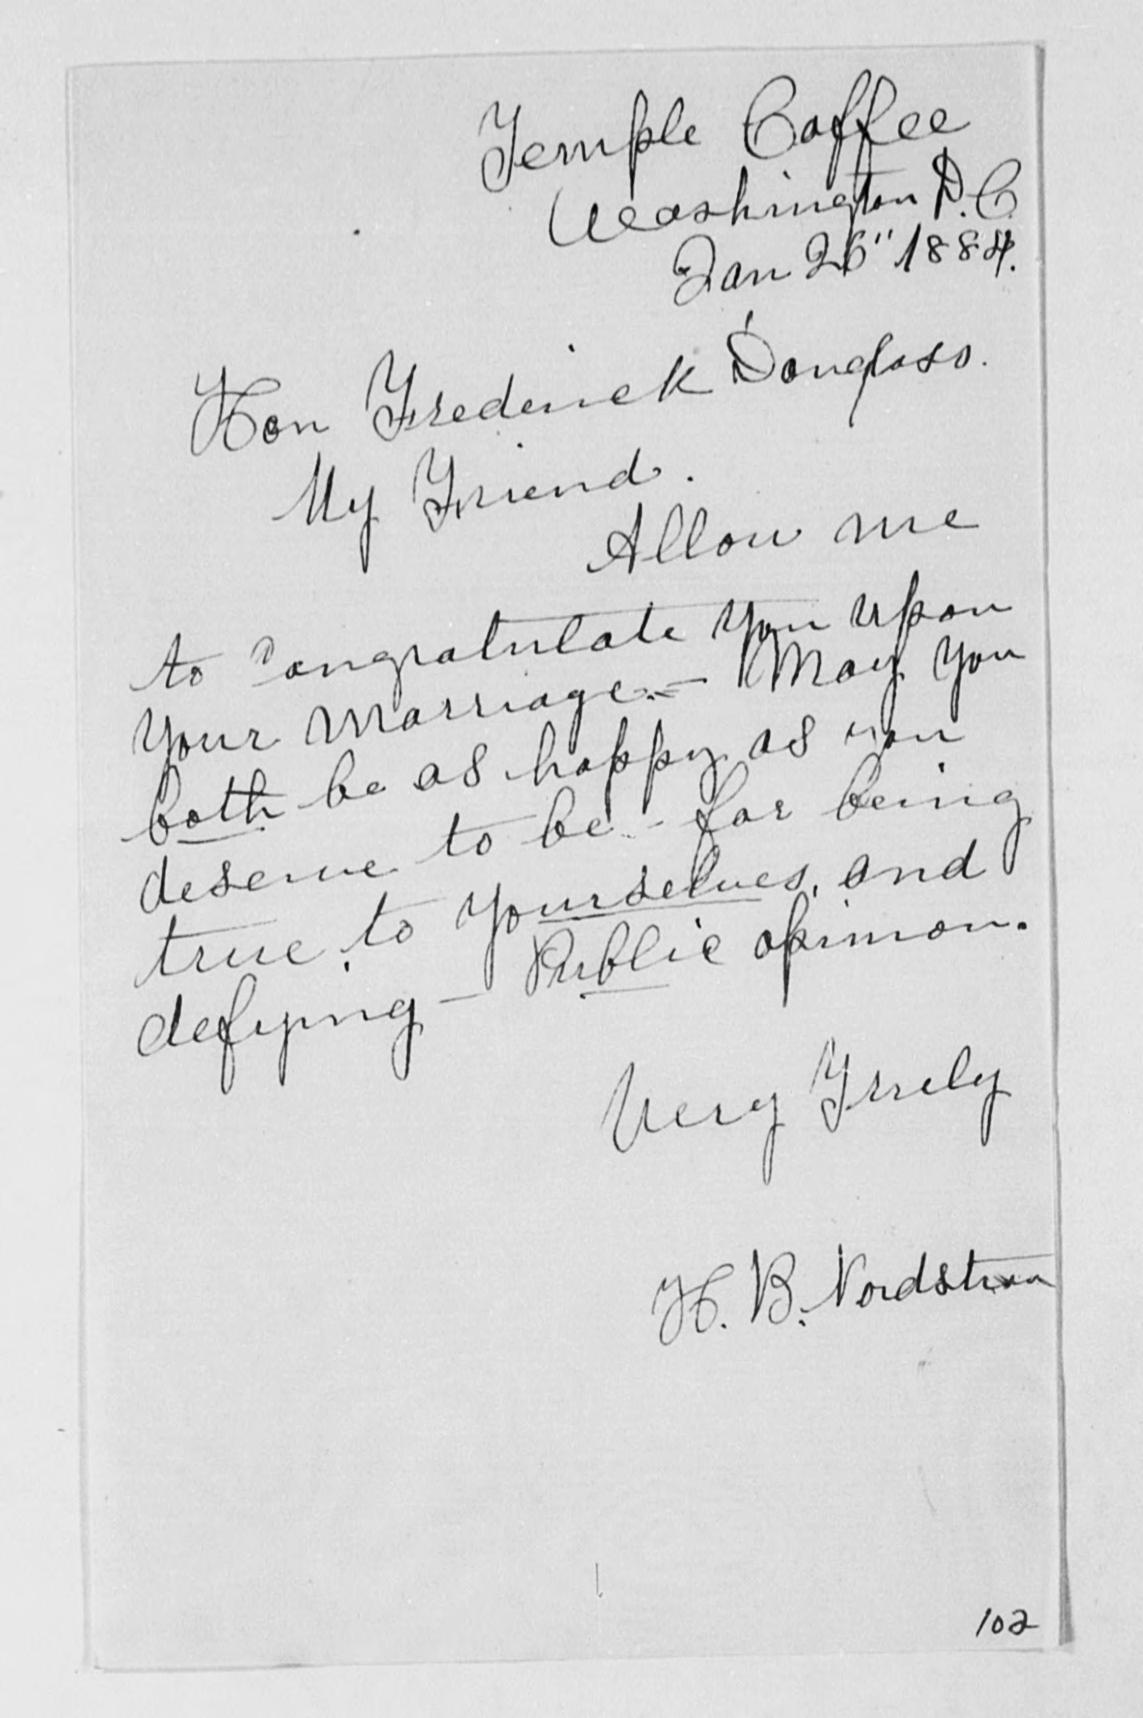 Temple Coffee
Washington D.C.
Jan 26" 1884.
Hon Frederick Douglass.
My Friend.
Allow me
to Congratulate You Upon
Your Marriage.- May You
both be as happy as you
deserve to be - for being
true to Yourselves, and
defying - Public opinion.
Very Truly
H. B. Nordstrom
102